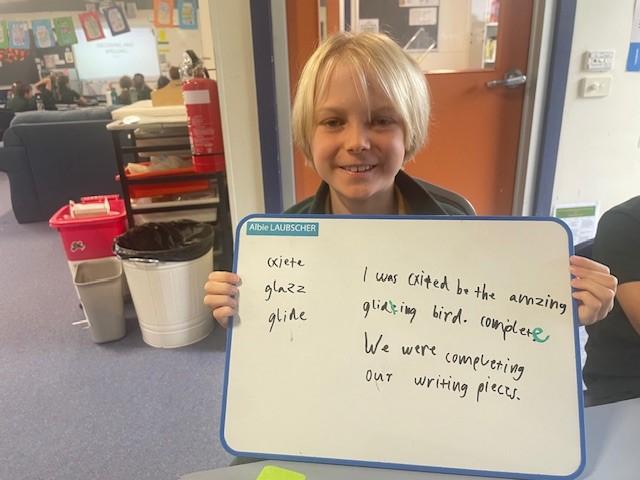 Albie LAUBSCHER
cxiete
glazz
glide
I was cxited be the amzing
gliding bird. complete
We were completing
our writing pieces.